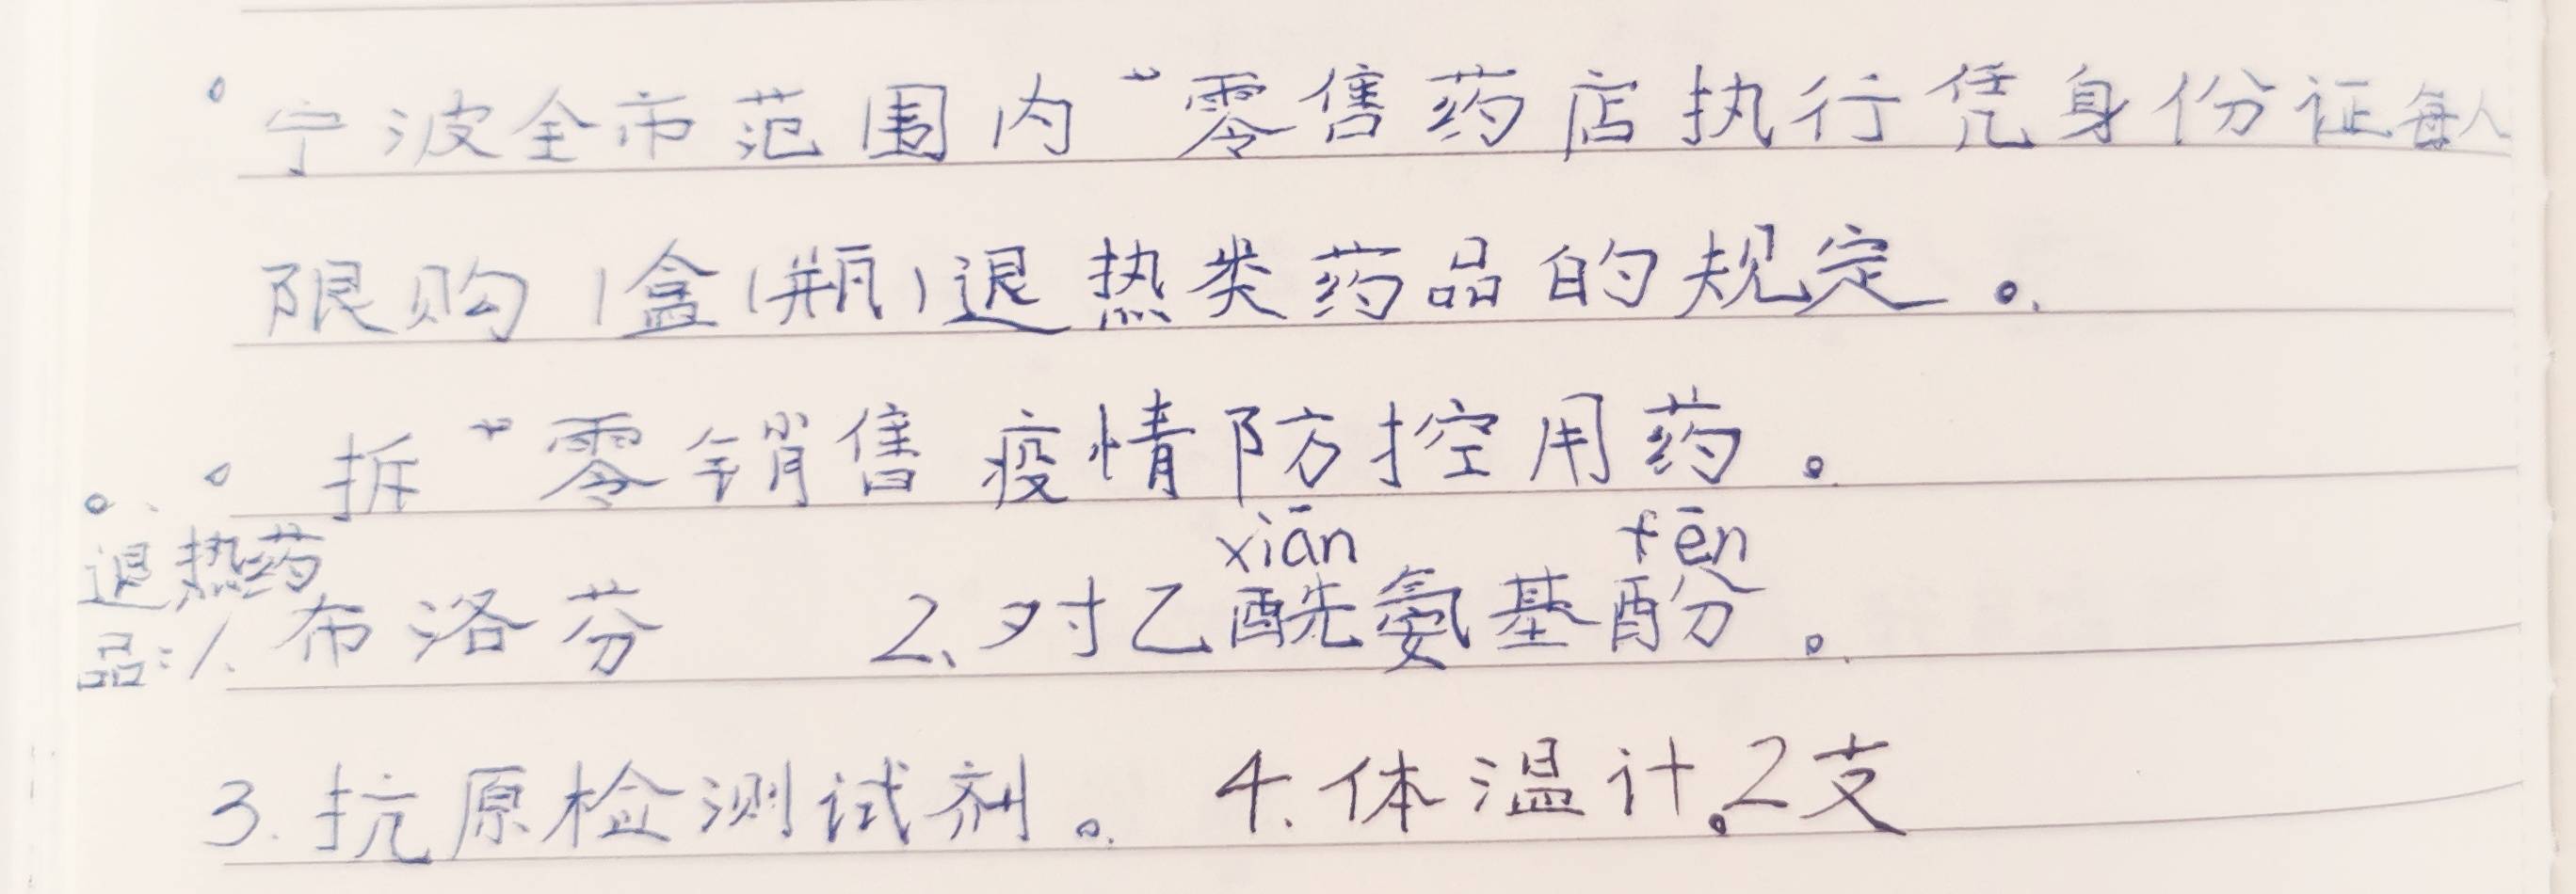 宁波全市范围内"零售药店执行凭身份证每人
限购1盒(瓶)退热类药品的规定。
拆"零销售疫情防控用药。
xiān fēn
退热药
品:1.布洛芬 2、对乙酰氨基酚。
3.抗原检测试剂。 4.体温计。2支